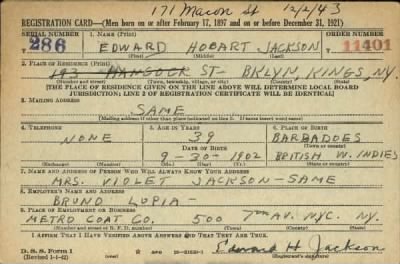 171 Macon St 12/2/43
REGISTRATION CARD—(Men born on or after February 17, 1897 and on or before December 31, 1921)
SERIAL NUMBER 1. NAME (Print) ORDER NUMBER
286 EDWARD HOBART JACKSON 11401
(First) (Middle) (Last)
2. PLACE OF RESIDENCE (Print)
193 HANCOCK ST- BKLYN, KINGS, N.Y.
(Number and street) (Town, township, village, or city) (County) (State)
[THE PLACE OF RESIDENCE GIVEN ON THE LINE ABOVE WILL DETERMINE LOCAL BOARD
JURISDICTION; LINE 2 OF REGISTRATION CERTIFICATE WILL BE IDENTICAL]
3. MAILING ADDRESS
SAME
[Mailing address if other than place indicated on line 2. If same insert word same]
4. TELEPHONE 5. AGE IN YEARS 6. PLACE OF BIRTH
NONE 39 BARBADOES
DATE OF BIRTH (Town or county)
9-30-1902 BRITISH W. INDIES
(Exchange) (Number) (Mo.) (Day) (Yr.) (State or country)
7. NAME AND ADDRESS OF PERSON WHO WILL ALWAYS KNOW YOUR ADDRESS
MRS. VIOLET JACKSON-SAME
8. EMPLOYER'S NAME AND ADDRESS
BRUNO LUPIA-
9. PLACE OF EMPLOYMENT OR BUSINESS
METRO COAT CO. 500 7TH AV. NYC. NY.
(Number and street or R. F. D. number) (Town) (County) (State)
I AFFIRM THAT I HAVE VERIFIED ABOVE ANSWERS AND THAT THEY ARE TRUE.
D. S. S. Form 1 Edward H. Jackson
(Revised 1-1-42) (over)